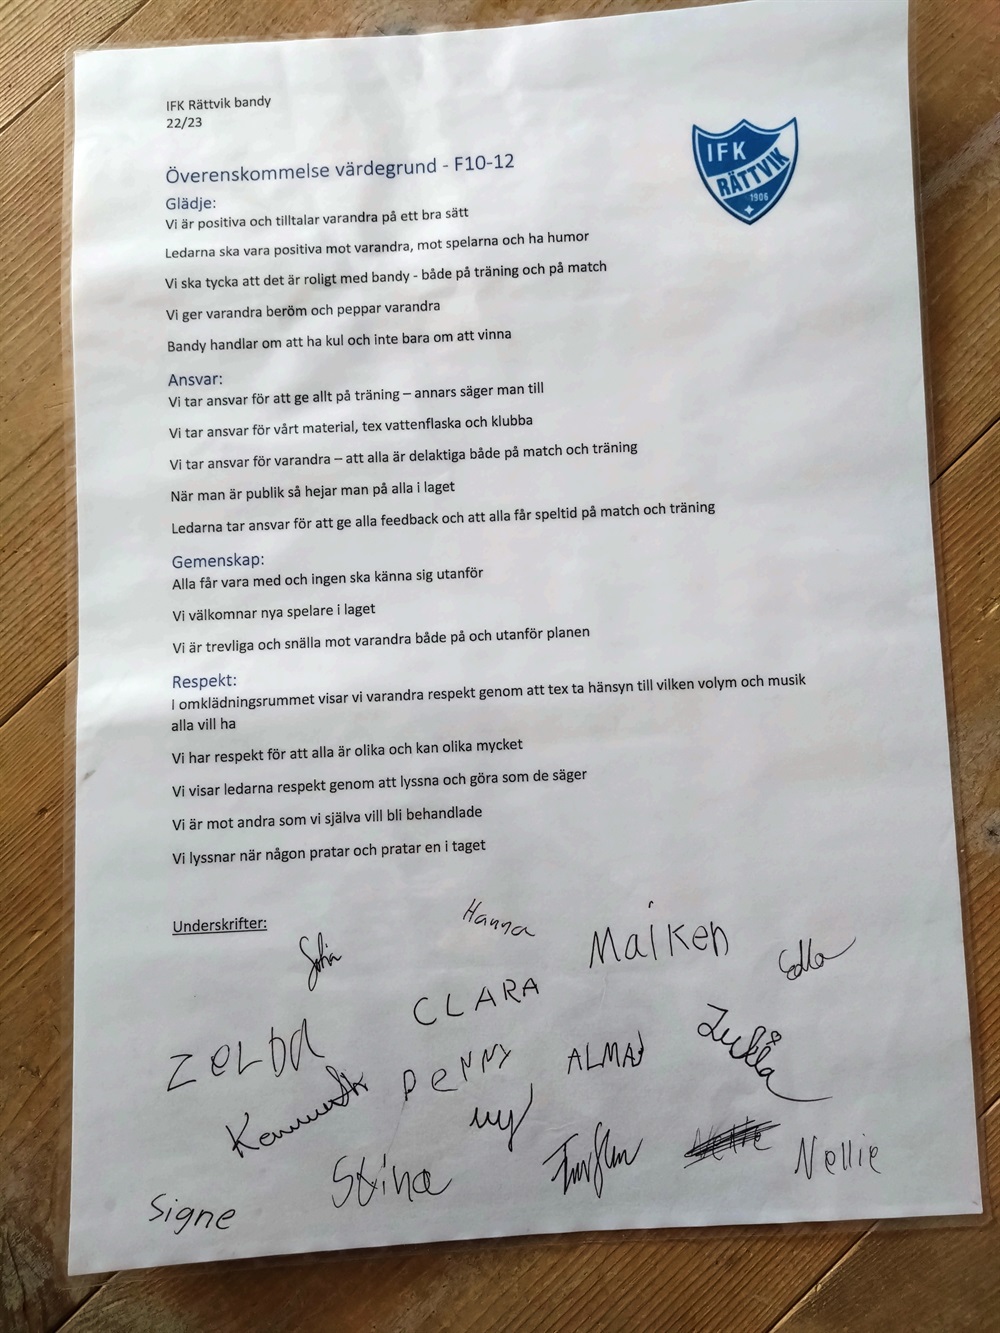 IFK Rättvik bandy
22/23
IFK
RÄTTVIK
1906
Överenskommelse värdegrund - F10-12
Glädje:
Vi är positiva och tilltalar varandra på ett bra sätt
Ledarna ska vara positiva mot varandra, mot spelarna och ha humor
Vi ska tycka att det är roligt med bandy - både på träning och på match
Vi ger varandra beröm och peppar varandra
Bandy handlar om att ha kul och inte bara om att vinna
Ansvar:
Vi tar ansvar för att ge allt på träning – annars säger man till
Vi tar ansvar för vårt material, tex vattenflaska och klubba
Vi tar ansvar för varandra – att alla är delaktiga både på match och träning
När man är publik så hejar man på alla i laget
Ledarna tar ansvar för att ge alla feedback och att alla får speltid på match och träning
Gemenskap:
Alla får vara med och ingen ska känna sig utanför
Vi välkomnar nya spelare i laget
Vi är trevliga och snälla mot varandra både på och utanför planen
Respekt:
I omklädningsrummet visar vi varandra respekt genom att tex ta hänsyn till vilken volym och musik
alla vill ha
Vi har respekt för att alla är olika och kan olika mycket
Vi visar ledarna respekt genom att lyssna och göra som de säger
Vi är mot andra som vi själva vill bli behandlade
Vi lyssnar när någon pratar och pratar en i taget
Underskrifter:
Hanna
Sofia
Maiken
Edla
CLARA
ZELDA
PENNY
ALMA
Stina
Nellie
Signe